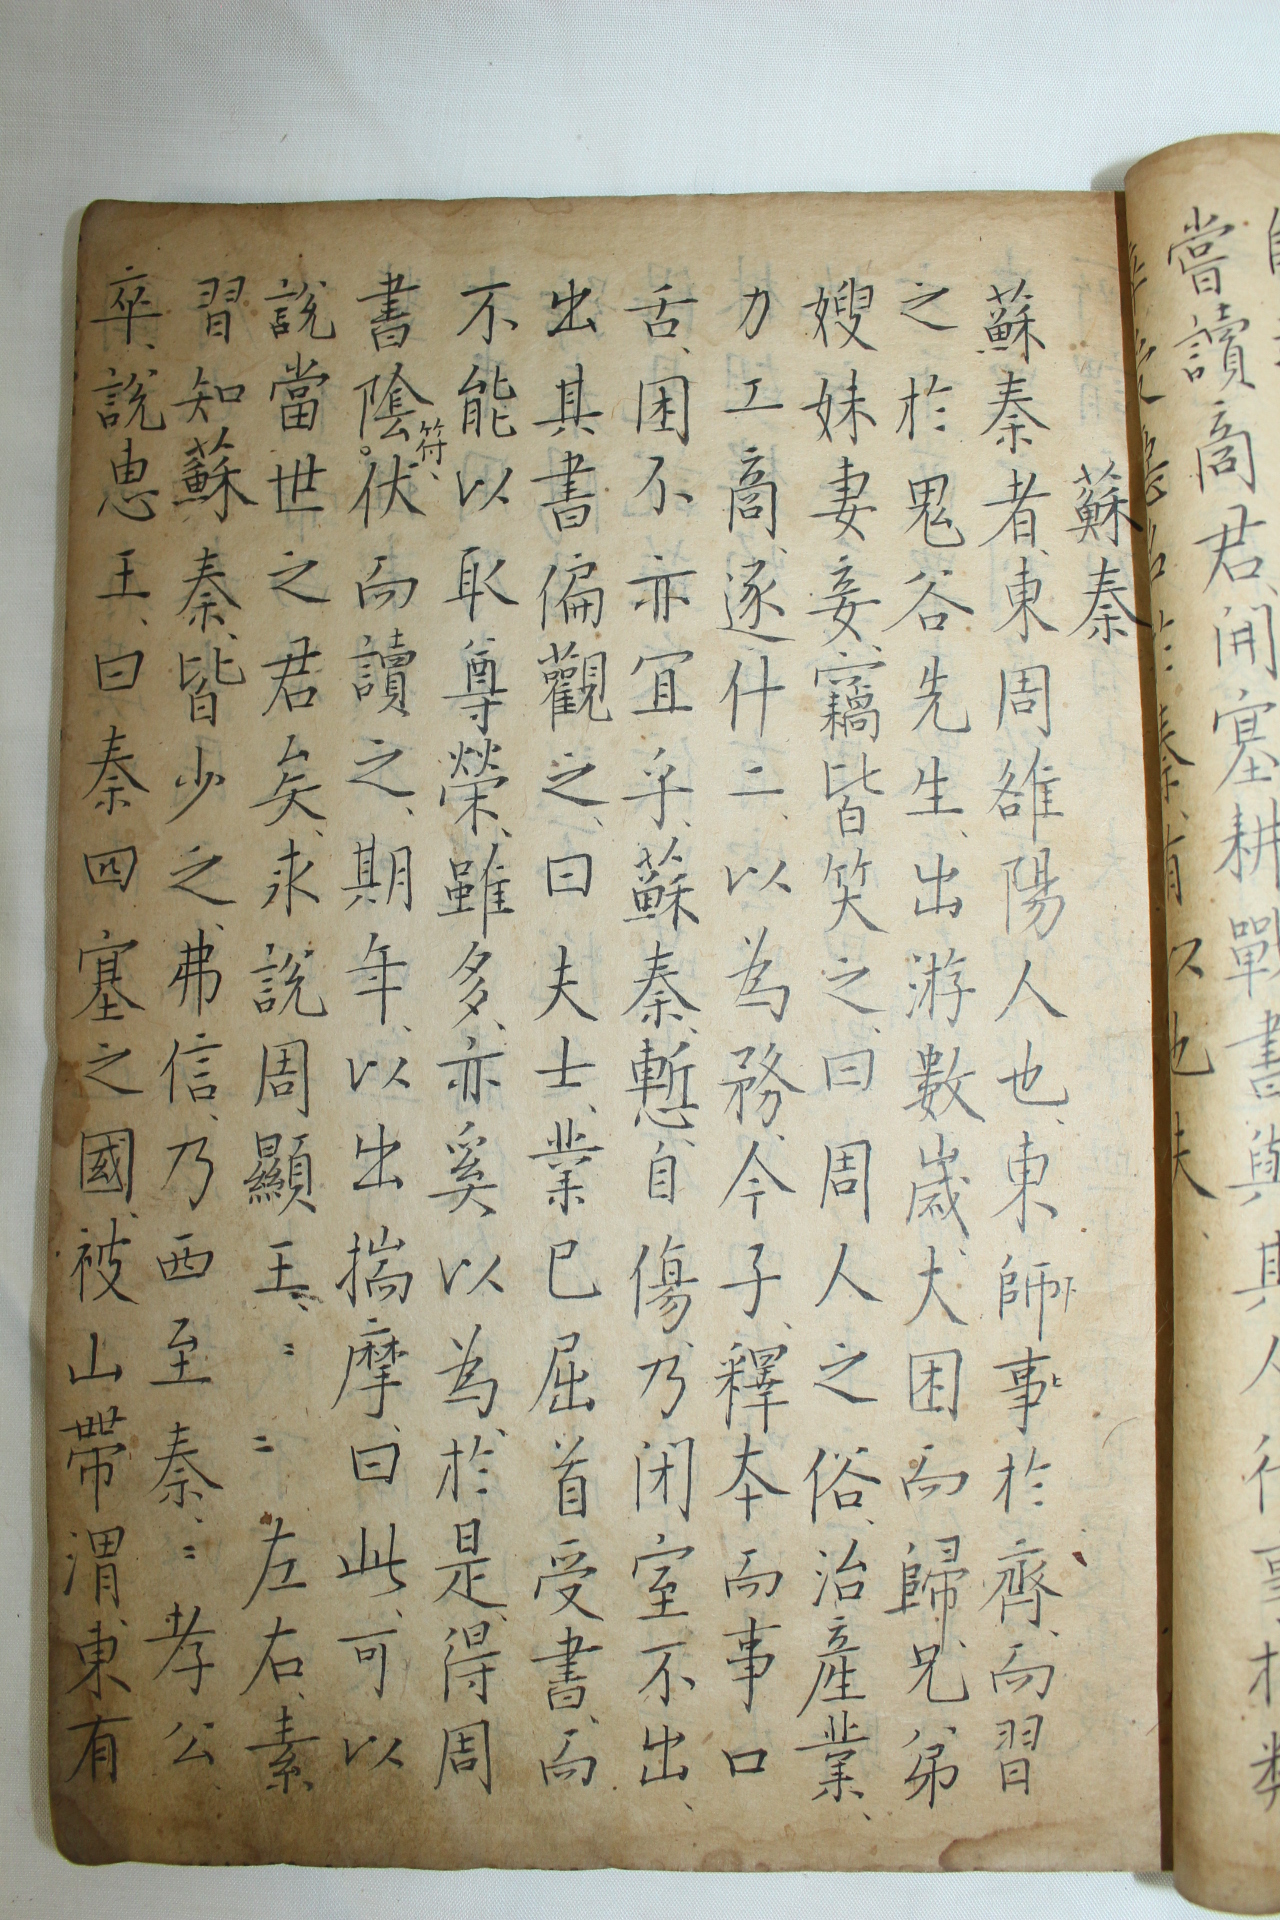 嘗讀商君、開塞耕戰書與其人行事相類
卒受惡名於秦、有以也夫、
蘇秦
蘇秦者、東周雒陽人也、東師事於齊、而習
之於鬼谷先生、出游數歲、大困而歸、兄弟
嫂妹妻妾、竊皆笑之、曰周人之俗、治產業、
力工商、逐什二、以為務、今子、釋本而事口
舌、困不亦宜乎、蘇秦、慙、自傷、乃閉室不出、
出其書偏觀之、曰夫士、業已屈首受書、而
不能以取尊榮、雖多、亦奚以為、於是、得周
書陰符、伏而讀之、期年、以出揣摩、曰此、可以
說當世之君矣、求說周顯王、〻〻左右、素
習知蘇秦、皆少之、弗信、乃西至秦、〻孝公、
卒、說惠王、曰秦四塞之國、被山帶渭、東有